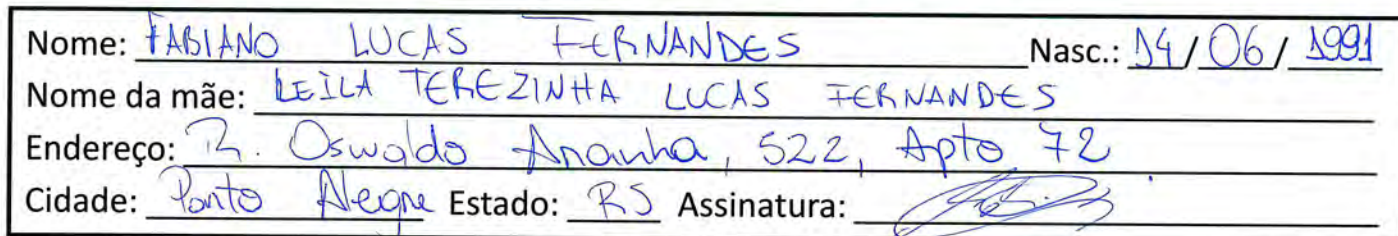 Nome: FABIANO LUCAS FERNANDES Nasc.: 14/06/1991
Nome da mãe: LEILA TEREZINHA LUCAS FERNANDES
Endereço: R. Oswaldo Aranha, 522, Apto 72
Cidade: Porto Alegre Estado: RS Assinatura: